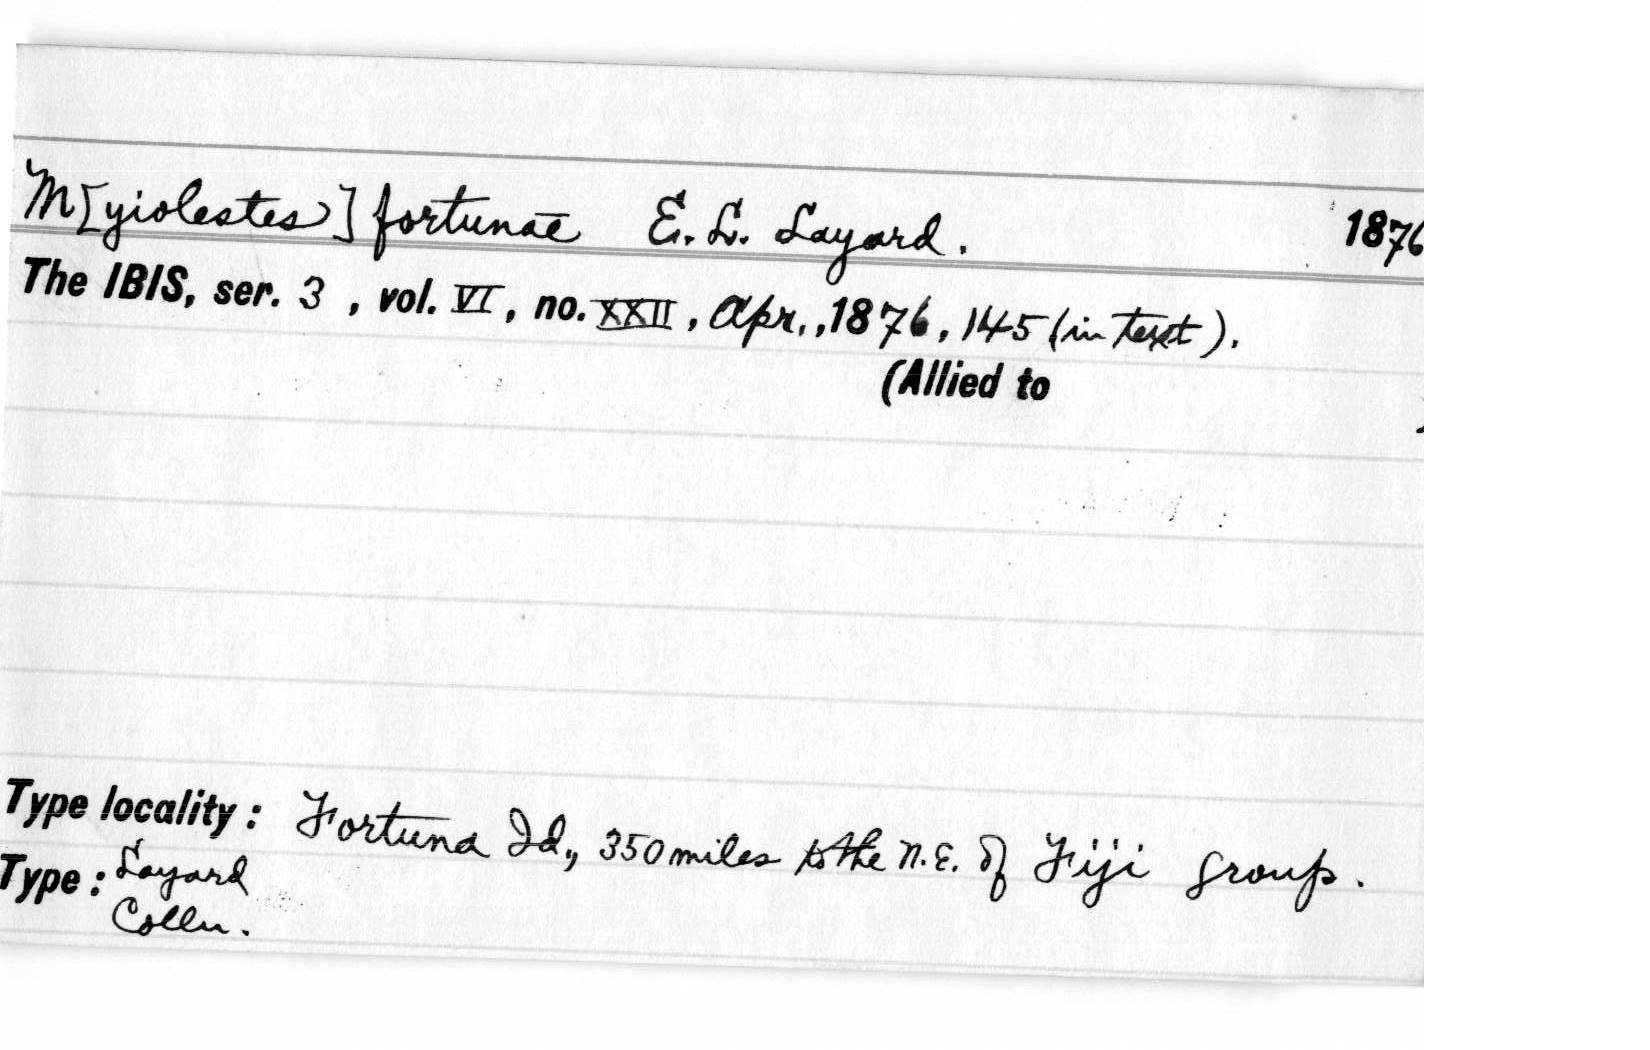 M[yiolestes] fortunae E. L. Layard. 1876
The IBIS, ser. 3 , vol. VI, no. XXII, Apr., 1876, 145 (in text).
(Allied to )
Type locality: Fortuna Id., 350 miles to the N.E. of Fiji group.
Type: Layard
Colln.